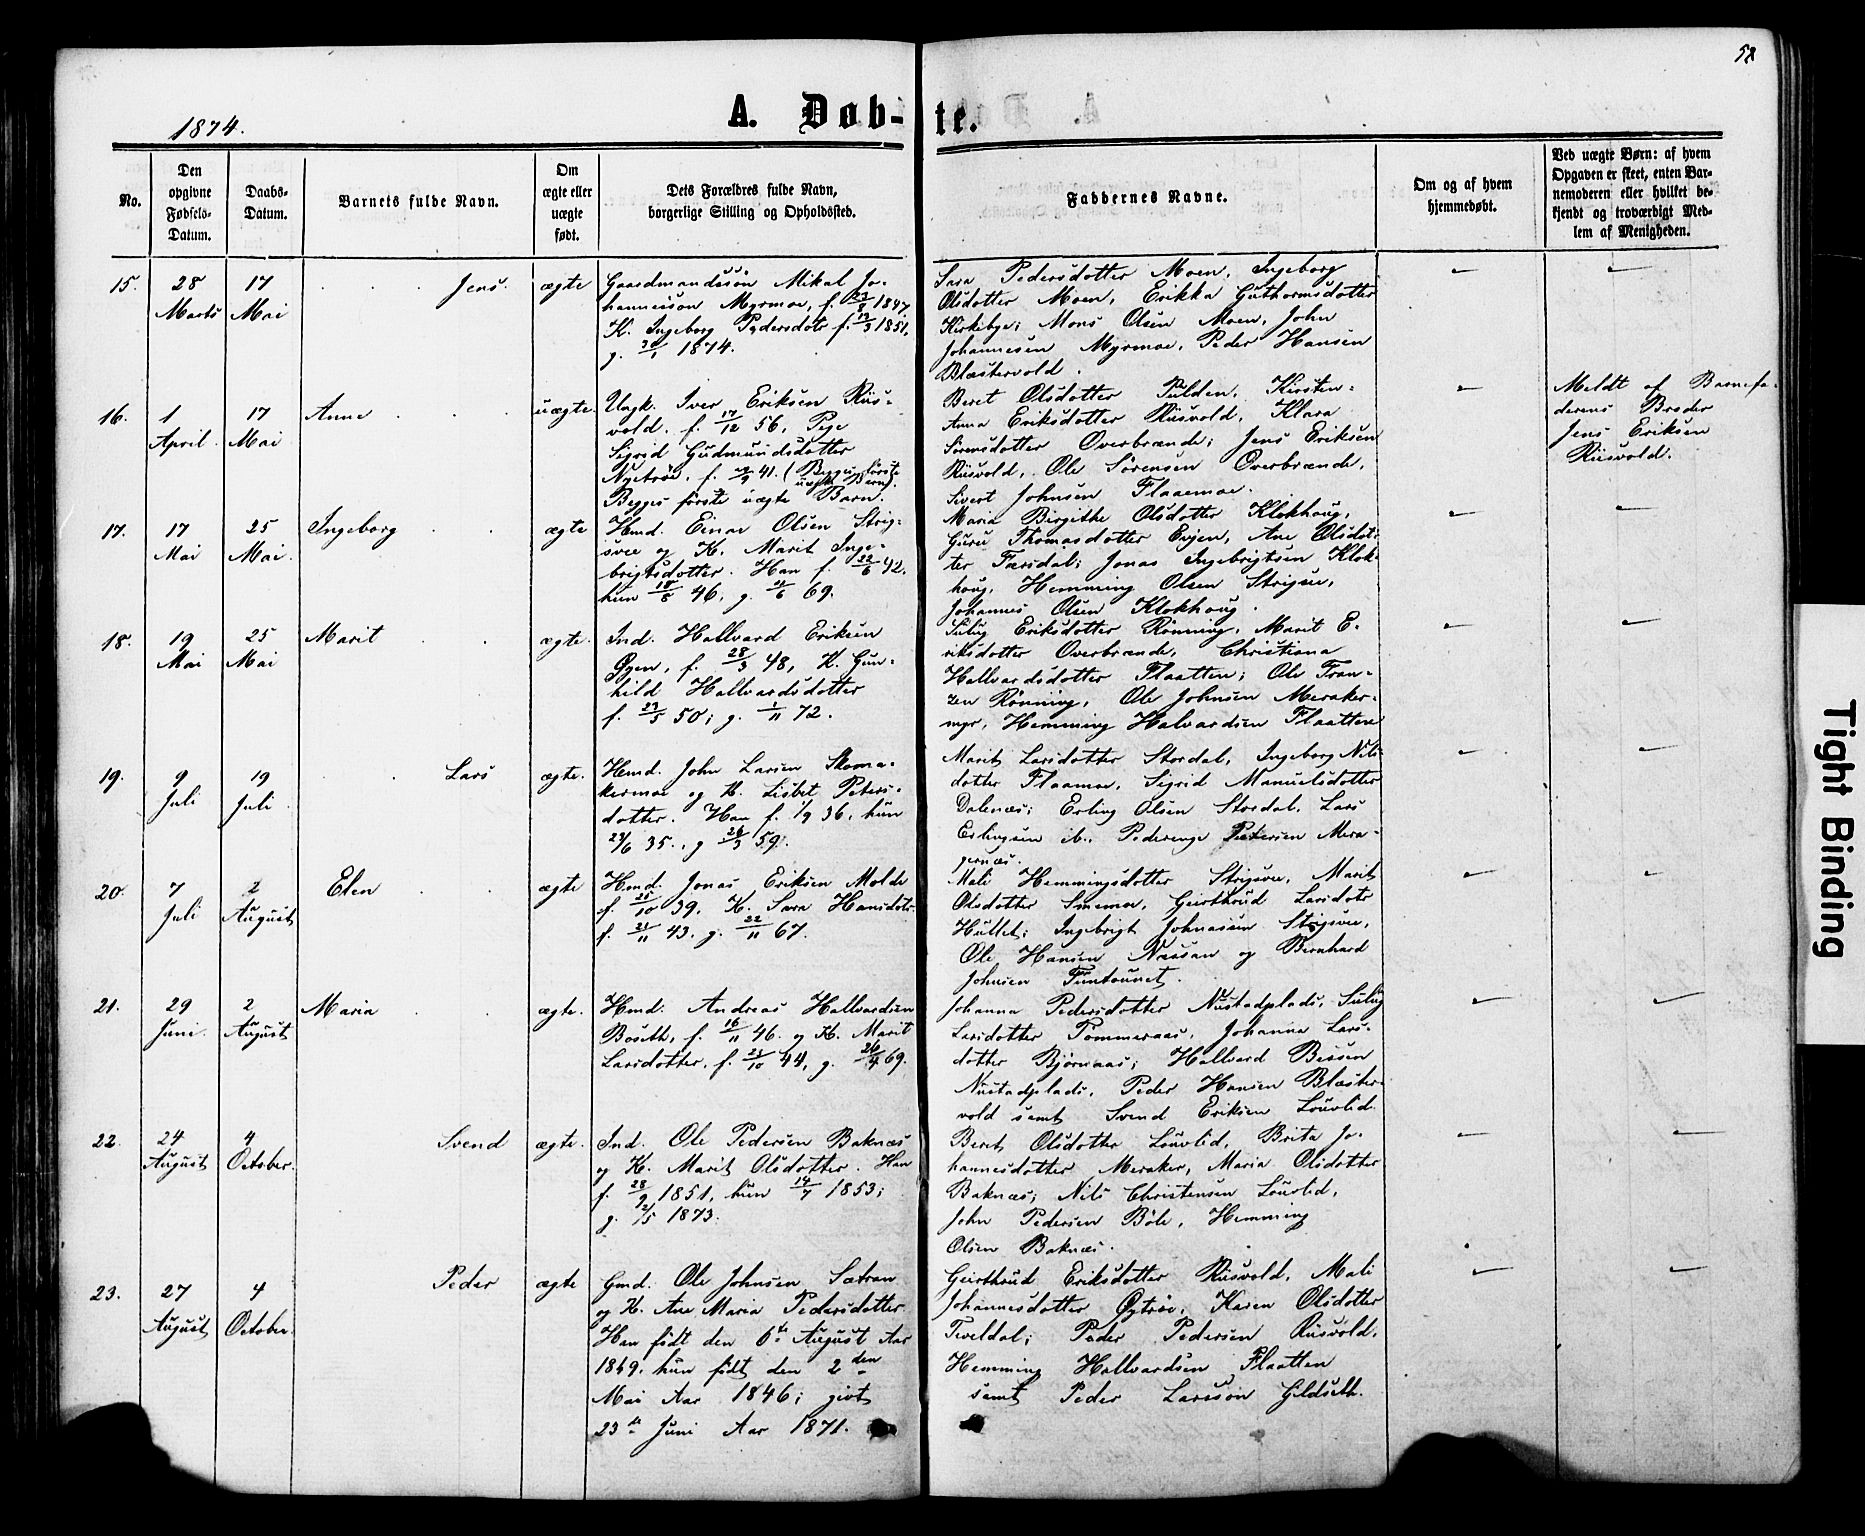 58
1874.
A. Døb-te.
No.
Den opgivne Fødsels-Datum.
Daabs-Datum.
Barnets fulde Navn.
Om ægte eller uægte født.
Dets Forældres fulde Navn, borgerlige Stilling og Opholdssted.
Faddernes Navne.
Om og af hvem hjemmedøbt.
Ved uægte Børn: af hvem Opgaven er skeet, enten Barnemoderen eller hvilket bekjendt og troværdigt Medlem af Menigheden.
15. 28 Marts 17 Mai Jens. ægte
Gaardmandssøn Mikal Jo-
hannessøn Myrmoe, f. 1847.
K. Ingeborg Pedersdotr f. 1851.
g. 1874.
Sara Pedersdotter Moen, Ingeborg
Olsdotter Moen, Erikka Guthormsdotter
Kirkebye; Mons Olsen Moen, John
Johannesen Myrmoe, Peder Hansen
Blæstervold.
16. 1 April. 17 Mai Anne uægte.
Ungk. Iver Eriksen Rus-
vold. f. 17/12 56, Pige
Sigrid Gudmundsdotter
Nytrøe, f. 41. (Begges første
uægte Børn).
Begges første uægte Barn.
Beret Olsdotter Fulden, Kirsten-
Anna Eriksdotter Rusvold, Klara
Sørensdotter Overbrænde; Jens Eriksen
Rusvold, Ole Sørensen Overbrænde,
Sivert Johnsen Flaamoe.
Meldt af Barnefa-
derens Broder
Jens Eriksen
Rusvold.
17. 17 Mai 25 Mai. Ingeborg ægte
Hmd. Einar Olsen Strig-
svee og K. Marit Inge-
brigtsdotter. Han f. 22/6 42.
hun 18/8 46, g. 69.
Maria Birgithe Olsdotter Klokhoug,
Guru Thomasdotter Evjen, Ane Olsdot-
ter Færsdal; Jonas Ingebrigtsen Klok-
houg, Hemming Olsen Strigsvee,
Johannes Olsen Klokhoug.
18. 19 Mai 25 Mai Marit ægte.
Ind. Hallvard Eriksen
Øyen, f. 28/3 48, K. Gun-
hild Hallvardsdotter
f. 23/5 50; g. 1/11 72.
Sulug Eriksdotter Rönning, Marit E-
riksdotter Overbrænde, Christiana
Hallvardsdotter Flaatten; Ole Fran-
zen Rönning, Ole Johnsen Meraker-
myr, Hemming Halvardsen Flaatten
19. 9 Juli 19 Juli Lars ægte.
Hmd. John Larsen Skoma-
kermoe og K. Lisbet Peters-
dotter. Han f. 1/9 36, hun
23/6 35., g 26/3 59.
Marit Larsdotter Stordal, Ingeborg Nils-
dotter Flaamoe, Sigrid Manuelsdotter
Dalenæs; Erling Olsen Stordal, Lars
Erlingsen ib., Pedereng Petersen Mera-
gernæs.
20. 7 Juli 2 August Elen ægte
Hmd. Jonas Eriksen Molde
f. 10 39. K. Sara Hansdotr
f. 21/11 43. g. 22/11 67.
Mali Hemmingsdotter Strigsvee, Marit
Olsdotter Smemoe, Geirthrud Larsdotr
Hultet; Ingebrigt Johnasen Strigsvee,
Ole Hansen Næssan og Bernhard
Johnsen Funtaunet.
21. 29 Juni. 2 August Maria ægte.
Hmd. Andreas Hallvardsen
Boseth, f. 16/11 46. og K. Marit
Larsdotter, f. 23/10 44, g. 26/4 69.
Johanna Pedersdotter Nustadplads, Sulug
Larsdotter Tommeraas, Johanna Lars-
dotter Bjørnaas; Hallvard Bessen
Nustadplads, Peder Hansen Blæster-
vold samt Svend Eriksen Louvlid.
22. 24 August 4 October. Svend ægte.
Ind. Ole Pedersen Baknæs
og K. Marit Olsdotter. Han
f. 28/9 1851, hun 14/7 1853;
g. 2/5 1873.
Beret Olsdotter Louvlid, Brita Jo-
hannesdotter Meraker, Maria Olsdotter
Baknæs; Nils Christensen Louvlid,
John Pedersen Böle, Hemming
Olsen Baknæs.
23. 27 August 4 October. Peder ægte
Gmd. Ole Johnsen Sætran
og K. Ane Maria Pedersdotter
Han født den 6te August Aar
1849. hun født den 2den
Mai Aar 1846; givt
23de Juni Aar 1871.
Geirthrud Eriksdotter Rusvold, Mali
Johannesdotter Øytrøe, Karen Olsdotter
Teveldal; Peder Pedersen Rusvold,
Hemming Hallvardsen Flaatten
samt Peder Larssøn Gildseth.
Tight Binding